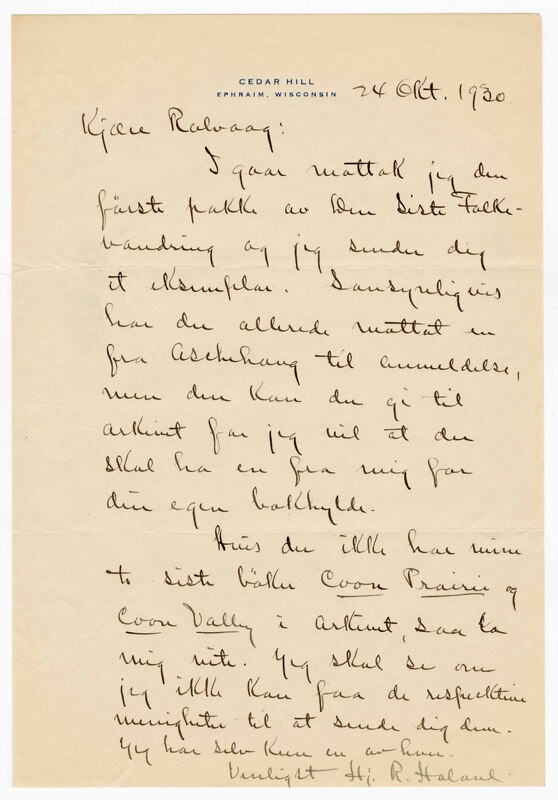 CEDAR HILL
EPHRAIM, WISCONSIN
24 Okt. 1930.
Kjære Rolvaag:
I gaar mottok jeg den
første pakke av Den Siste Folke-
vandring og jeg sender dig
et eksemplar. Sansynligvis
har du allerede mottat en
fra Aschehoug til anmeldelse,
men den kan du gi til
arkivet for jeg vil at du
skal ha en fra mig for
din egen bokhylde.
Hvis du ikke har mine
to siste bøker Coon Prairie og
Coon Valley i arkivet, saa la
mig vite. Jeg skal se om
jeg ikke kan faa de respektive
menigheter til at sende dig dem.
Jeg har selv kun en av hver.
Venligst Hj. R. Holand.